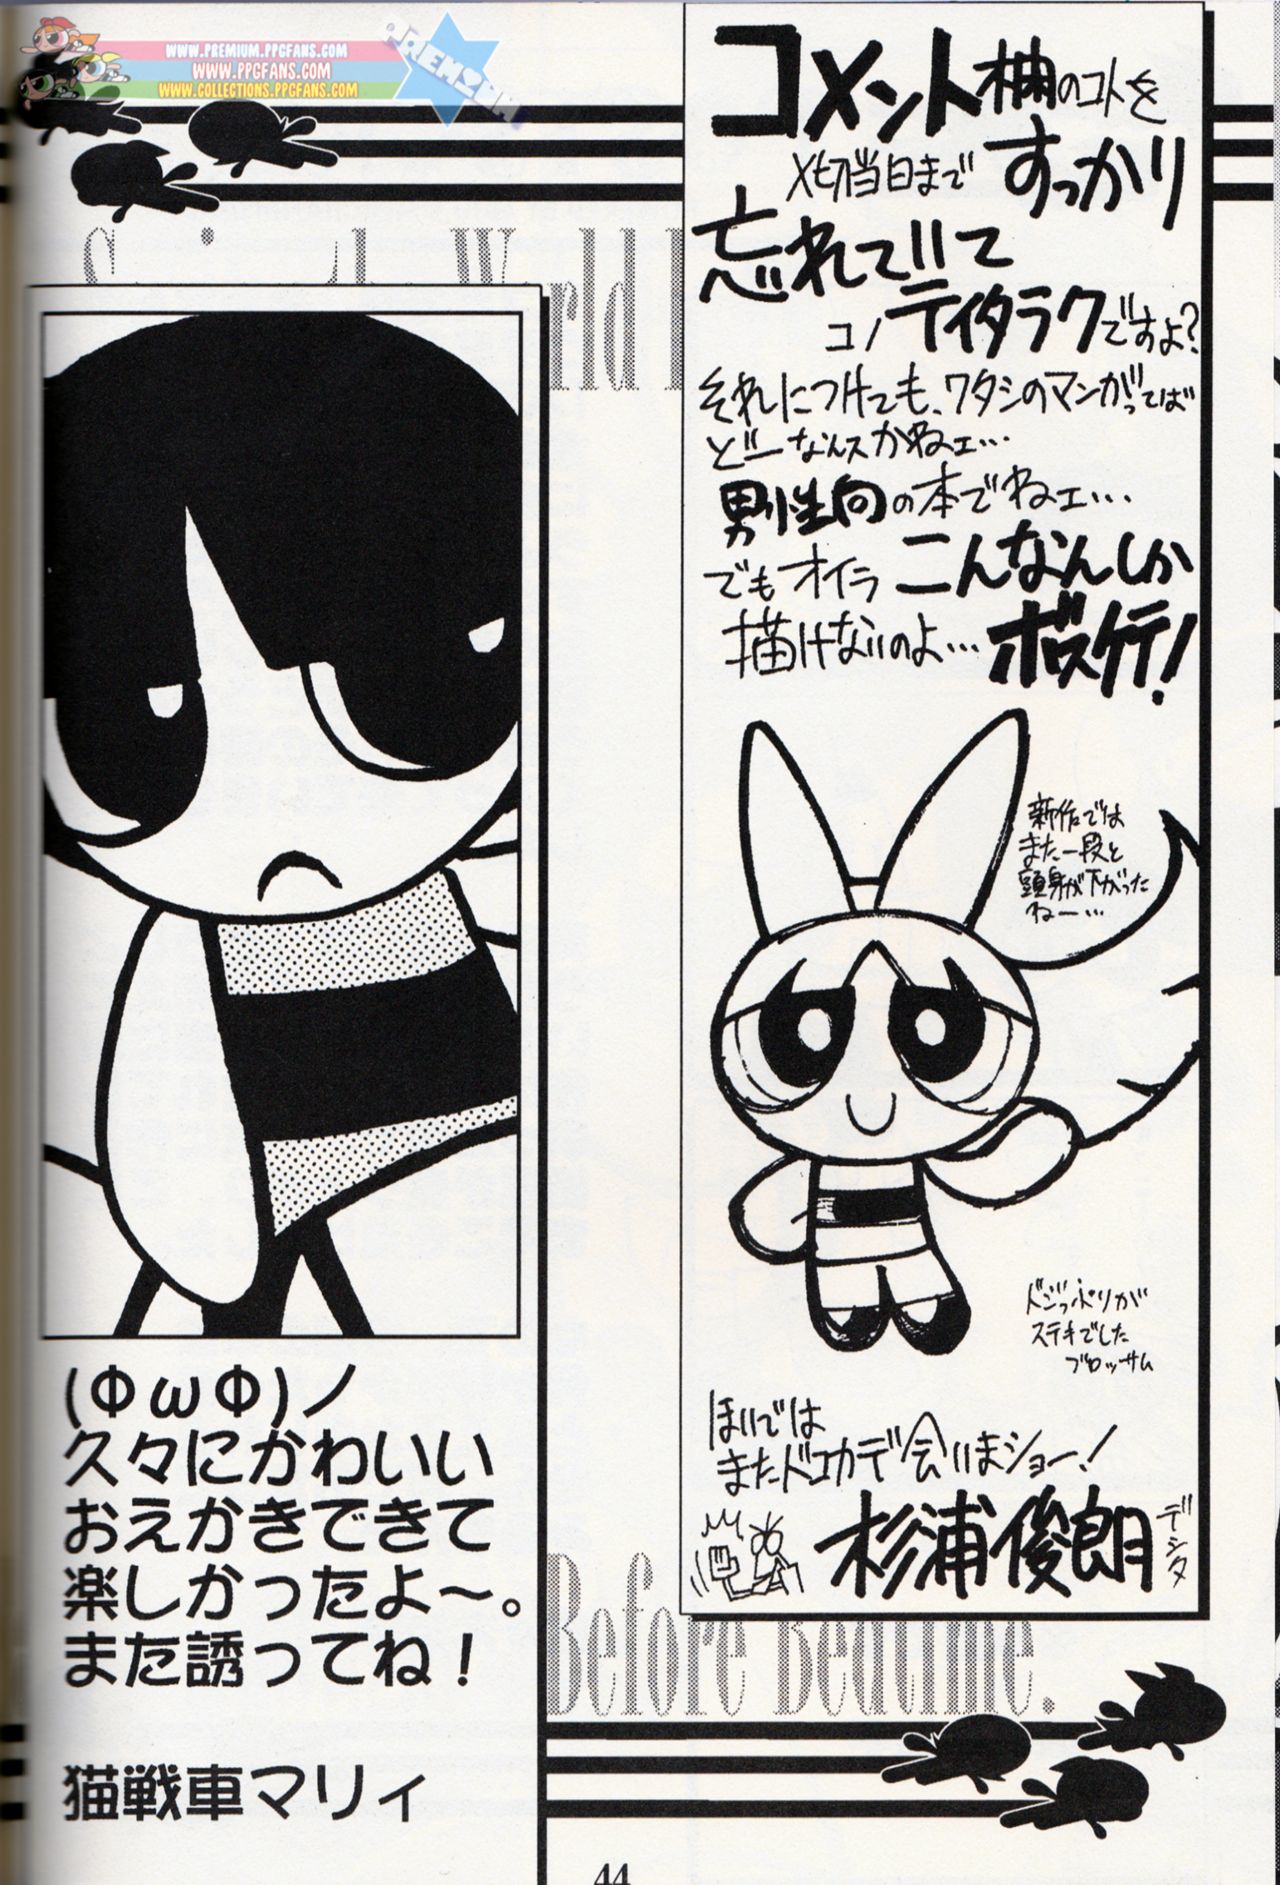 WWW.PREMIUM.PPGFANS.COM
WWW.PPGFANS.COM
WWW.COLLECTIONS.PPGFANS.COM
PREMIUM
コメント欄のコトを
〆切当日まで すっかり
忘れていて
コノ テイタラクですよ?
それにつけても、ワタシのマンガってば
どーなんスかねェ…
男性向の本でねェ…
でもオイラ こんなんしか
描けないのよ… ボスケテ!
新作では
また一段と
頭身が下がった
ねー…
ドンっぷりが
ステキでした
ブロッサム
ほいでは
またドコカデ会いまショー!
杉浦俊朗
デシタ
World
Before Bedtime.
(ΦωΦ)ノ
久々にかわいい
おえかきできて
楽しかったよ~。
また誘ってね!
猫戦車マリィ
44